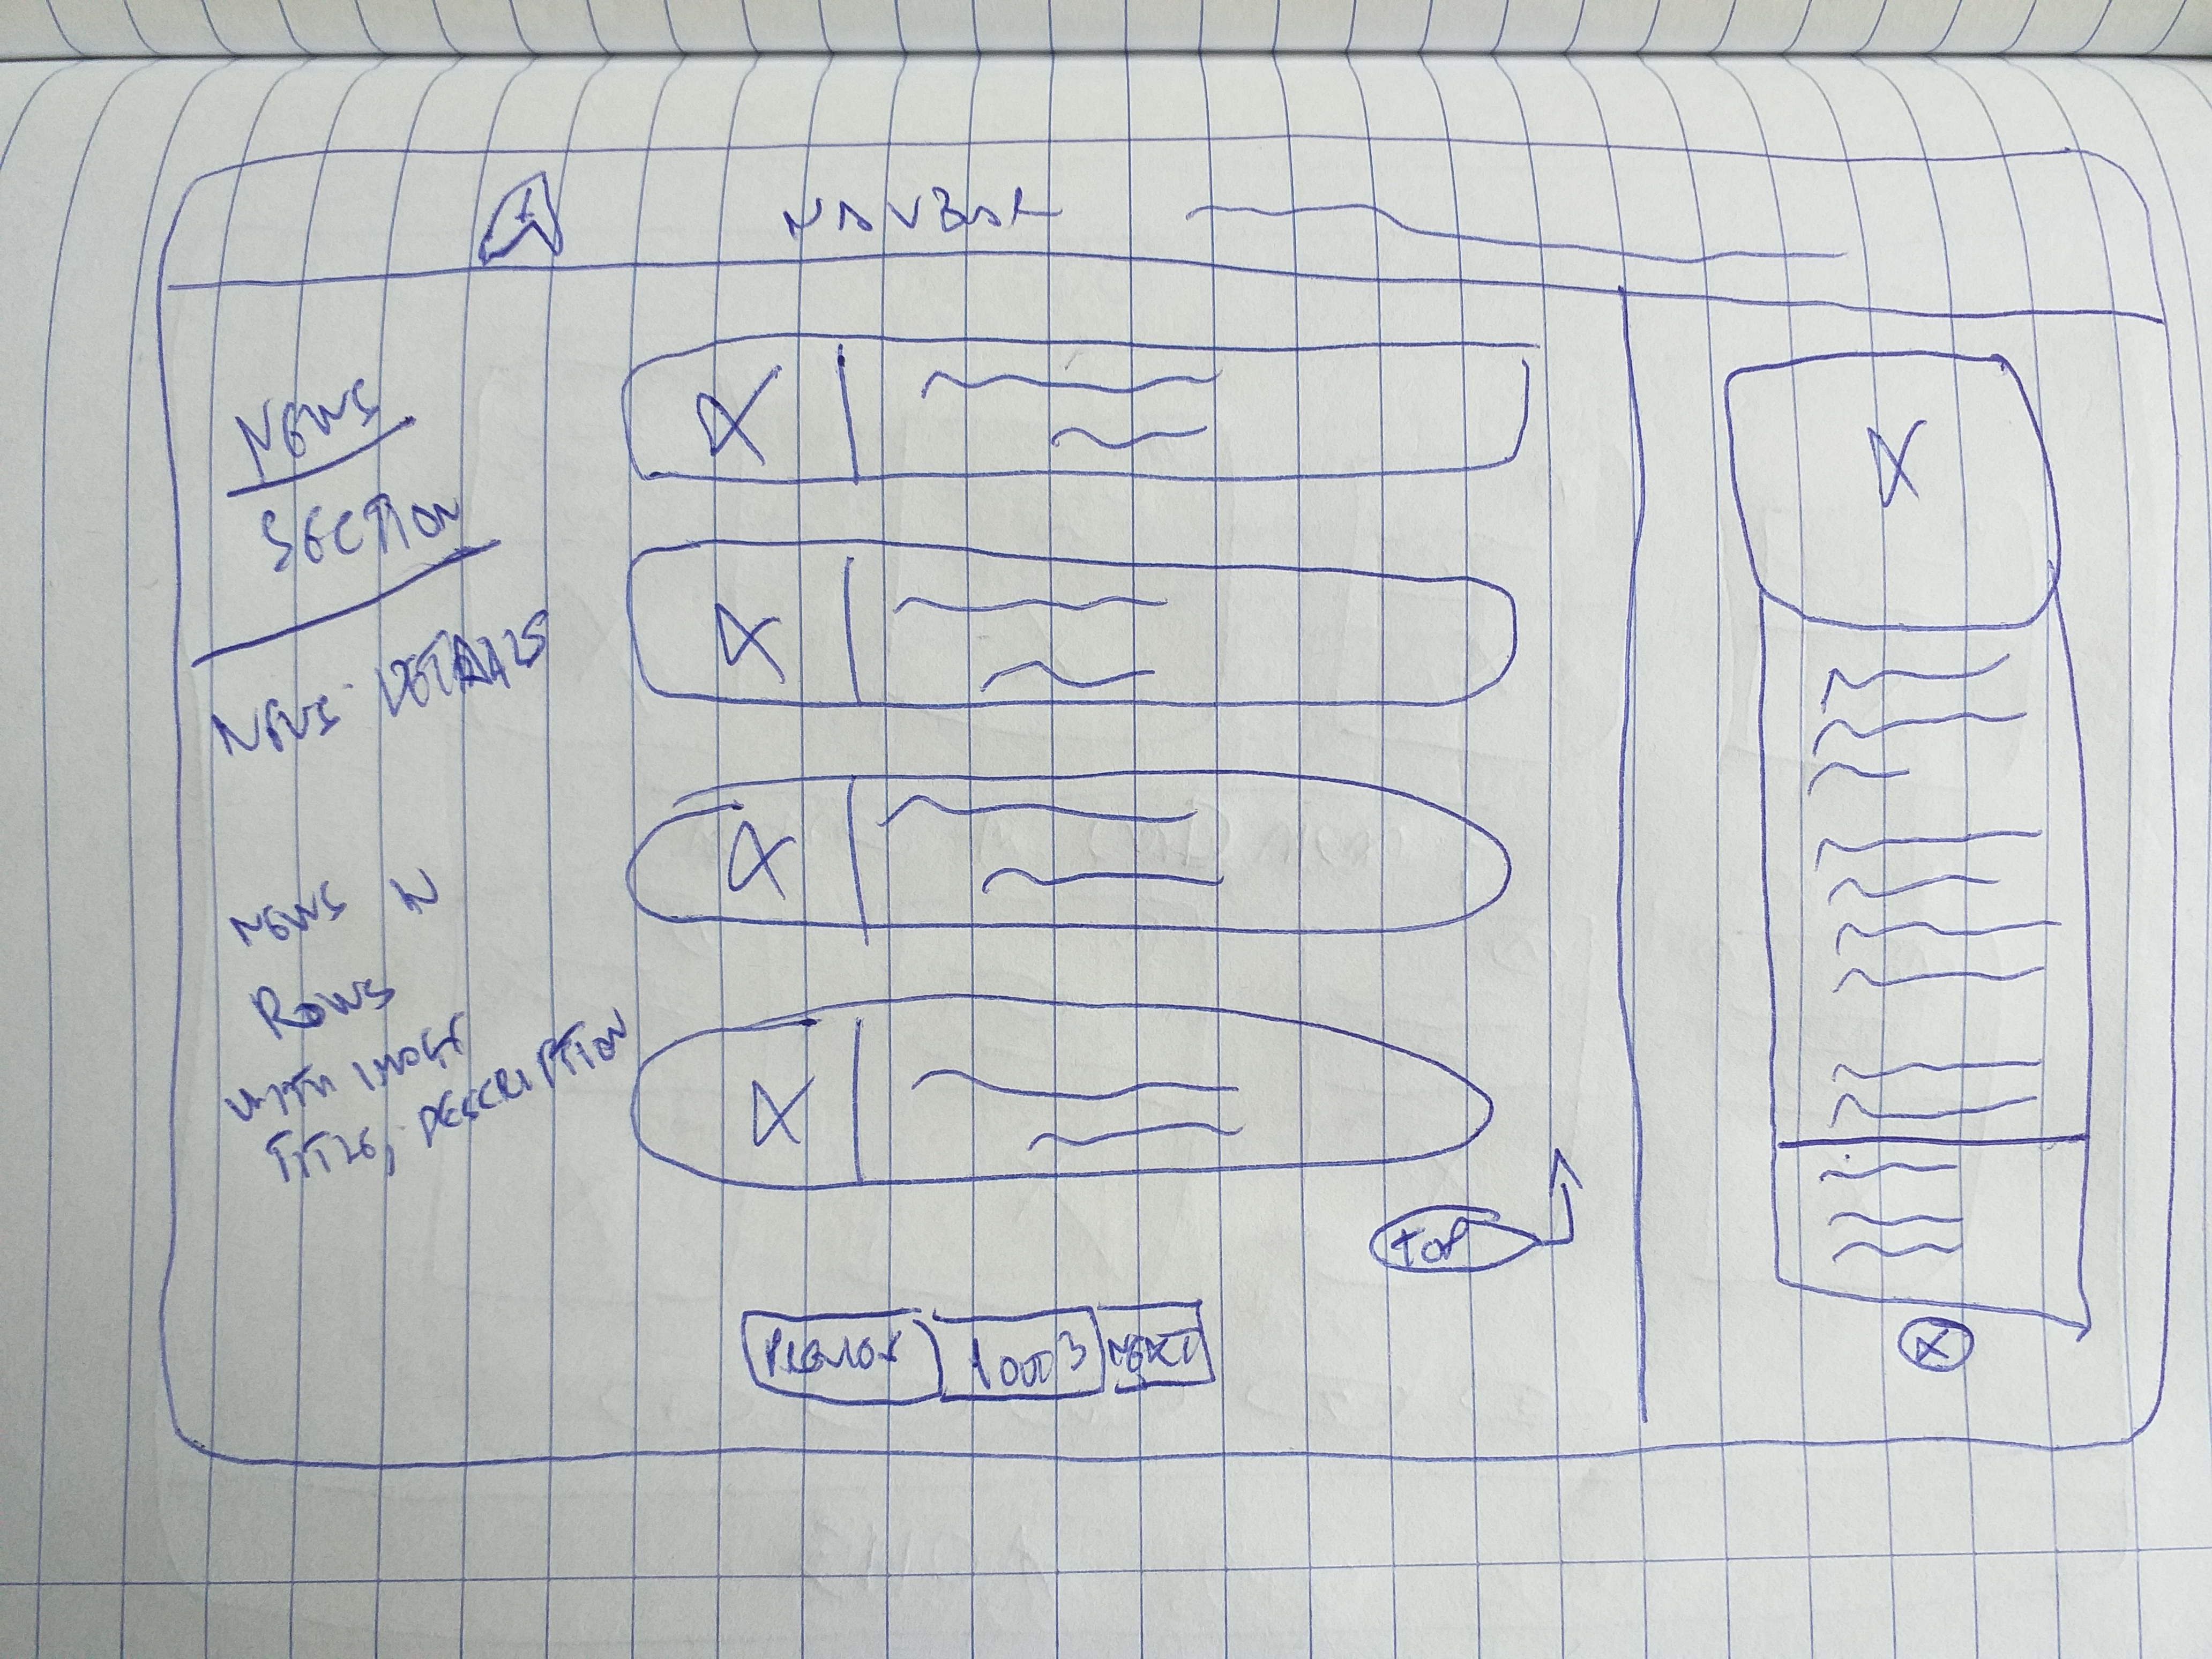 NAVBAR
NEWS
SECTION
NEWS DETAILS
NEWS IN
ROWS
WITH IMAGE
TITLE, DESCRIPTION
TOP
1 OUT 3
NEXT